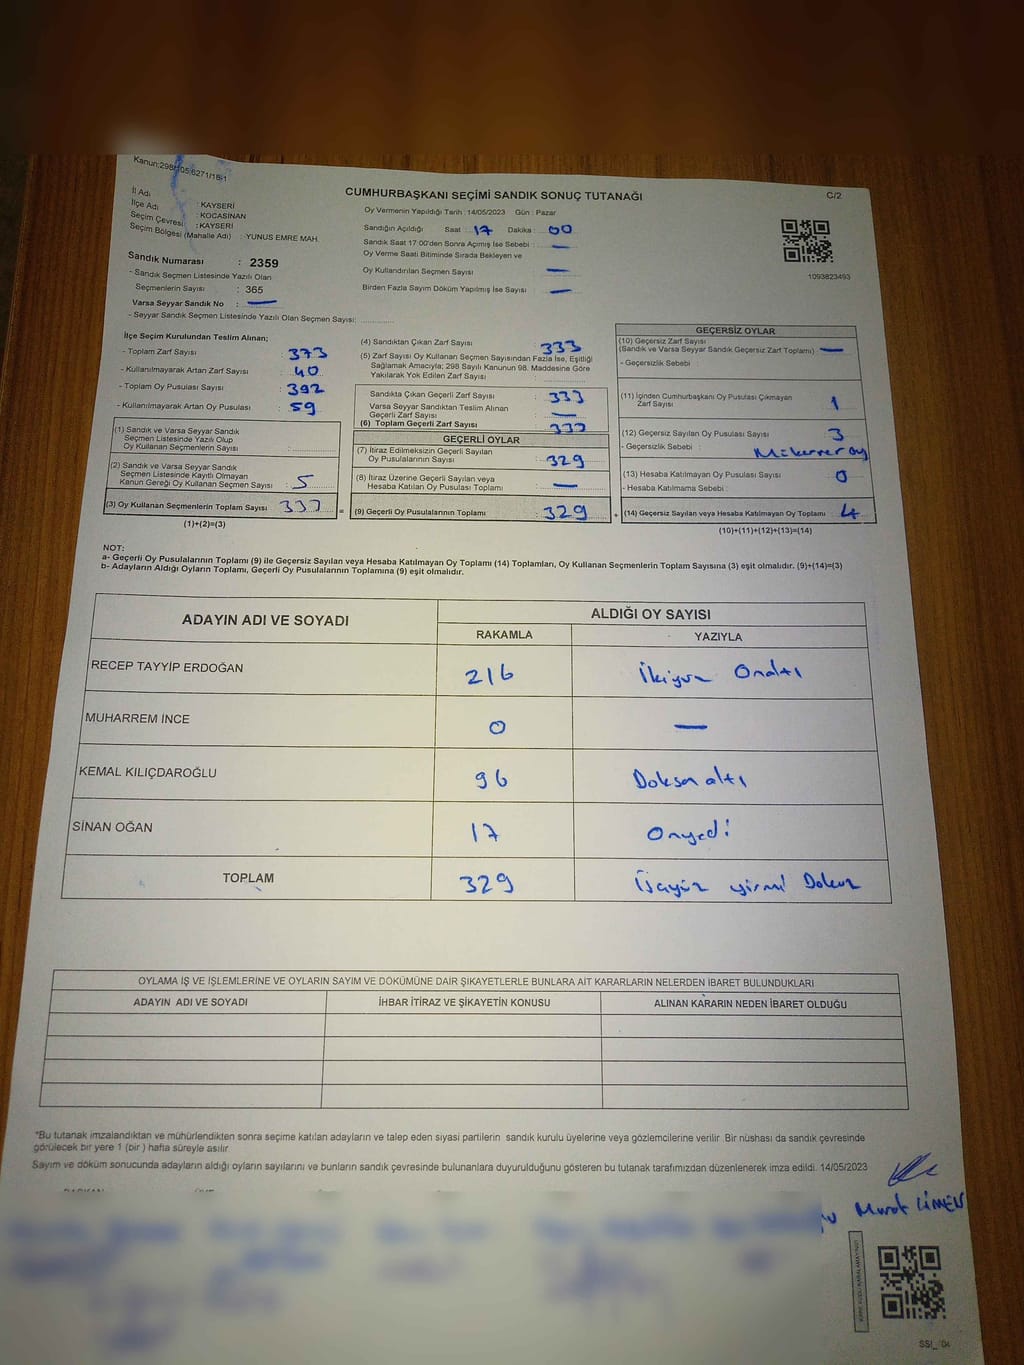 Kanun:298/105,6271/18-1
CUMHURBAŞKANI SEÇİMİ SANDIK SONUÇ TUTANAĞI
C/2
İl Adı : KAYSERİ
İlçe Adı : KOCASİNAN
Seçim Çevresi : KAYSERİ
Seçim Bölgesi (Mahalle Adı) : YUNUS EMRE MAH.
Oy Vermenin Yapıldığı Tarih : 14/05/2023 Gün : Pazar
Sandığın Açıldığı Saat : 17 Dakika : 00
Sandık Saat 17:00'den Sonra Açımış İse Sebebi : —
Oy Verme Saati Bitiminde Sırada Bekleyen ve
Oy Kullandırılan Seçmen Sayısı : —
Birden Fazla Sayım Döküm Yapılmış İse Sayısı : —
1093823493
Sandık Numarası : 2359
- Sandık Seçmen Listesinde Yazılı Olan
Seçmenlerin Sayısı : 365
Varsa Seyyar Sandık No : —
- Seyyar Sandık Seçmen Listesinde Yazılı Olan Seçmen Sayısı:
İlçe Seçim Kurulundan Teslim Alınan;
- Toplam Zarf Sayısı : 373
- Kullanılmayarak Artan Zarf Sayısı : 40
- Toplam Oy Pusulası Sayısı : 392
- Kullanılmayarak Artan Oy Pusulası : 59
(1) Sandık ve Varsa Seyyar Sandık
Seçmen Listesinde Yazılı Olup
Oy Kullanan Seçmenlerin Sayısı :
(2) Sandık ve Varsa Seyyar Sandık
Seçmen Listesinde Kayıtlı Olmayan
Kanun Gereği Oy Kullanan Seçmen Sayısı : 5
(3) Oy Kullanan Seçmenlerin Toplam Sayısı : 333 =
(1)+(2)=(3)
(4) Sandıktan Çıkan Zarf Sayısı : 333
(5) Zarf Sayısı Oy Kullanan Seçmen Sayısından Fazla İse, Eşitliği
Sağlamak Amacıyla; 298 Sayılı Kanunun 98. Maddesine Göre
Yakılarak Yok Edilen Zarf Sayısı :
Sandıkta Çıkan Geçerli Zarf Sayısı : 333
Varsa Seyyar Sandıktan Teslim Alınan
Geçerli Zarf Sayısı : —
(6) Toplam Geçerli Zarf Sayısı : 333
GEÇERLİ OYLAR
(7) İtiraz Edilmeksizin Geçerli Sayılan
Oy Pusulalarının Sayısı : 329
(8) İtiraz Üzerine Geçerli Sayılan veya
Hesaba Katılan Oy Pusulası Toplamı : —
(9) Geçerli Oy Pusulalarının Toplamı : 329 +
GEÇERSİZ OYLAR
(10) Geçersiz Zarf Sayısı
(Sandık ve Varsa Seyyar Sandık Geçersiz Zarf Toplamı) : —
- Geçersizlik Sebebi :
(11) İçinden Cumhurbaşkanı Oy Pusulası Çıkmayan
Zarf Sayısı : 1
(12) Geçersiz Sayılan Oy Pusulası Sayısı : 3
- Geçersizlik Sebebi : Mükerrer oy
(13) Hesaba Katılmayan Oy Pusulası Sayısı : 0
- Hesaba Katılmama Sebebi :
(14) Geçersiz Sayılan veya Hesaba Katılmayan Oy Toplamı : 4
(10)+(11)+(12)+(13)=(14)
NOT:
a- Geçerli Oy Pusulalarının Toplamı (9) ile Geçersiz Sayılan veya Hesaba Katılmayan Oy Toplamı (14) Toplamları, Oy Kullanan Seçmenlerin Toplam Sayısına (3) eşit olmalıdır. (9)+(14)=(3)
b- Adayların Aldığı Oyların Toplamı, Geçerli Oy Pusulalarının Toplamına (9) eşit olmalıdır.
ADAYIN ADI VE SOYADI
ALDIĞI OY SAYISI
RAKAMLA YAZIYLA
RECEP TAYYİP ERDOĞAN 216 İkiyüz Onaltı
MUHARREM İNCE 0 —
KEMAL KILIÇDAROĞLU 96 Doksanaltı
SİNAN OĞAN 17 Onyedi
TOPLAM 329 Üçyüz yirmi Dokuz
OYLAMA İŞ VE İŞLEMLERİNE VE OYLARIN SAYIM VE DÖKÜMÜNE DAİR ŞİKAYETLERLE BUNLARA AİT KARARLARIN NELERDEN İBARET BULUNDUKLARI
ADAYIN ADI VE SOYADI İHBAR İTİRAZ VE ŞİKAYETİN KONUSU ALINAN KARARIN NEDEN İBARET OLDUĞU
*Bu tutanak imzalandıktan ve mühürlendikten sonra seçime katılan adayların ve talep eden siyasi partilerin sandık kurulu üyelerine veya gözlemcilerine verilir. Bir nüshası da sandık çevresinde
görülecek bir yere 1 (bir ) hafta süreyle asılır.
Sayım ve döküm sonucunda adayların aldığı oyların sayılarını ve bunların sandık çevresinde bulunanlara duyurulduğunu gösteren bu tutanak tarafımızdan düzenlenerek imza edildi. 14/05/2023
Murat